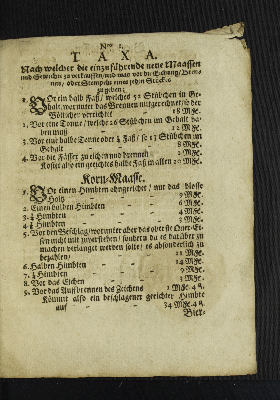 Nro 1.
TAXA.
Nach welcher die einzuführende neue Maassen
und Gewichte zu verkauffen, und was vor die Eichung/ Bren-
nen/ oder Stempeln eines jeden Stücks
zu geben:
1. Vor ein halb Faß/ welches 52 Stübchen in Ge-
halt, worunter das Brennen mitgerechnet/ so der
Bötticher verrichtet 18 Mge.
2. Vor eine Tonne/ welche 26 Stübchen im Gehalt ha-
ben muß 12 Mge.
3. Vor eine halbe Tonne oder ¼ Faß/ so 13 Stübchen im
Gehalt 8 Mge.
4. Vor die Fässer zu eichen und brennen 2 Mge.
Kostet also ein geeichtes halbe Faß in allen 20 Mge.
Korn-Maasse.
1. Vor einen Himbten abgerichtet/ nur das blosse
Holtz 9 Mge.
2. Einen halben Himbten 6 Mge.
3. ¼ Himbten 4 Mge.
4. Himbten 3 Mge.
5. Vor den Beschlag/ worunter aber das oberste Quer-Ei-
sen nicht mit zuverstehen/ sondern da es darüber zu
machen verlanget werden solte/ es absonderlich zu
bezahlen/ 21 Mge.
6. Halben Himbten 14 Mge.
7. ¼ Himbten 9 Mge.
8. Vor das Eichen 3 Mge.
9. Vor das Auffbrennen des Zeichens 1 Mge. 4 .
Kömmt also ein beschlagener geeichter Himbte
auf 34 Mge. 4 .
Bier-